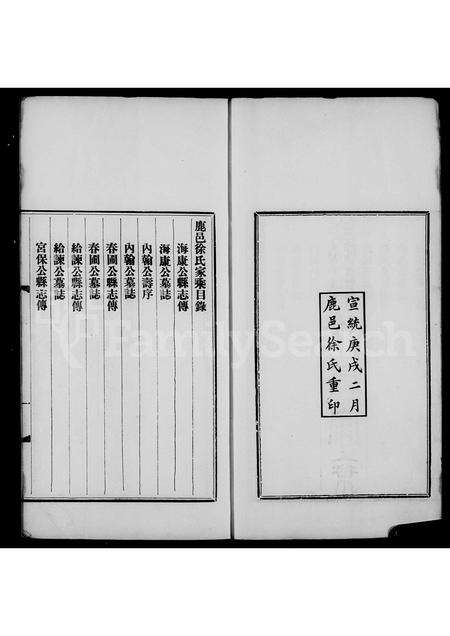 宣統庚戌二月
鹿邑徐氏重印
鹿邑徐氏家乘目錄
海康公縣志傳
海康公墓誌
內翰公壽序
內翰公墓誌
春圃公縣志傳
春圃公墓誌
給諫公縣志傳
給諫公墓誌
宮保公縣志傳
FamilySearch